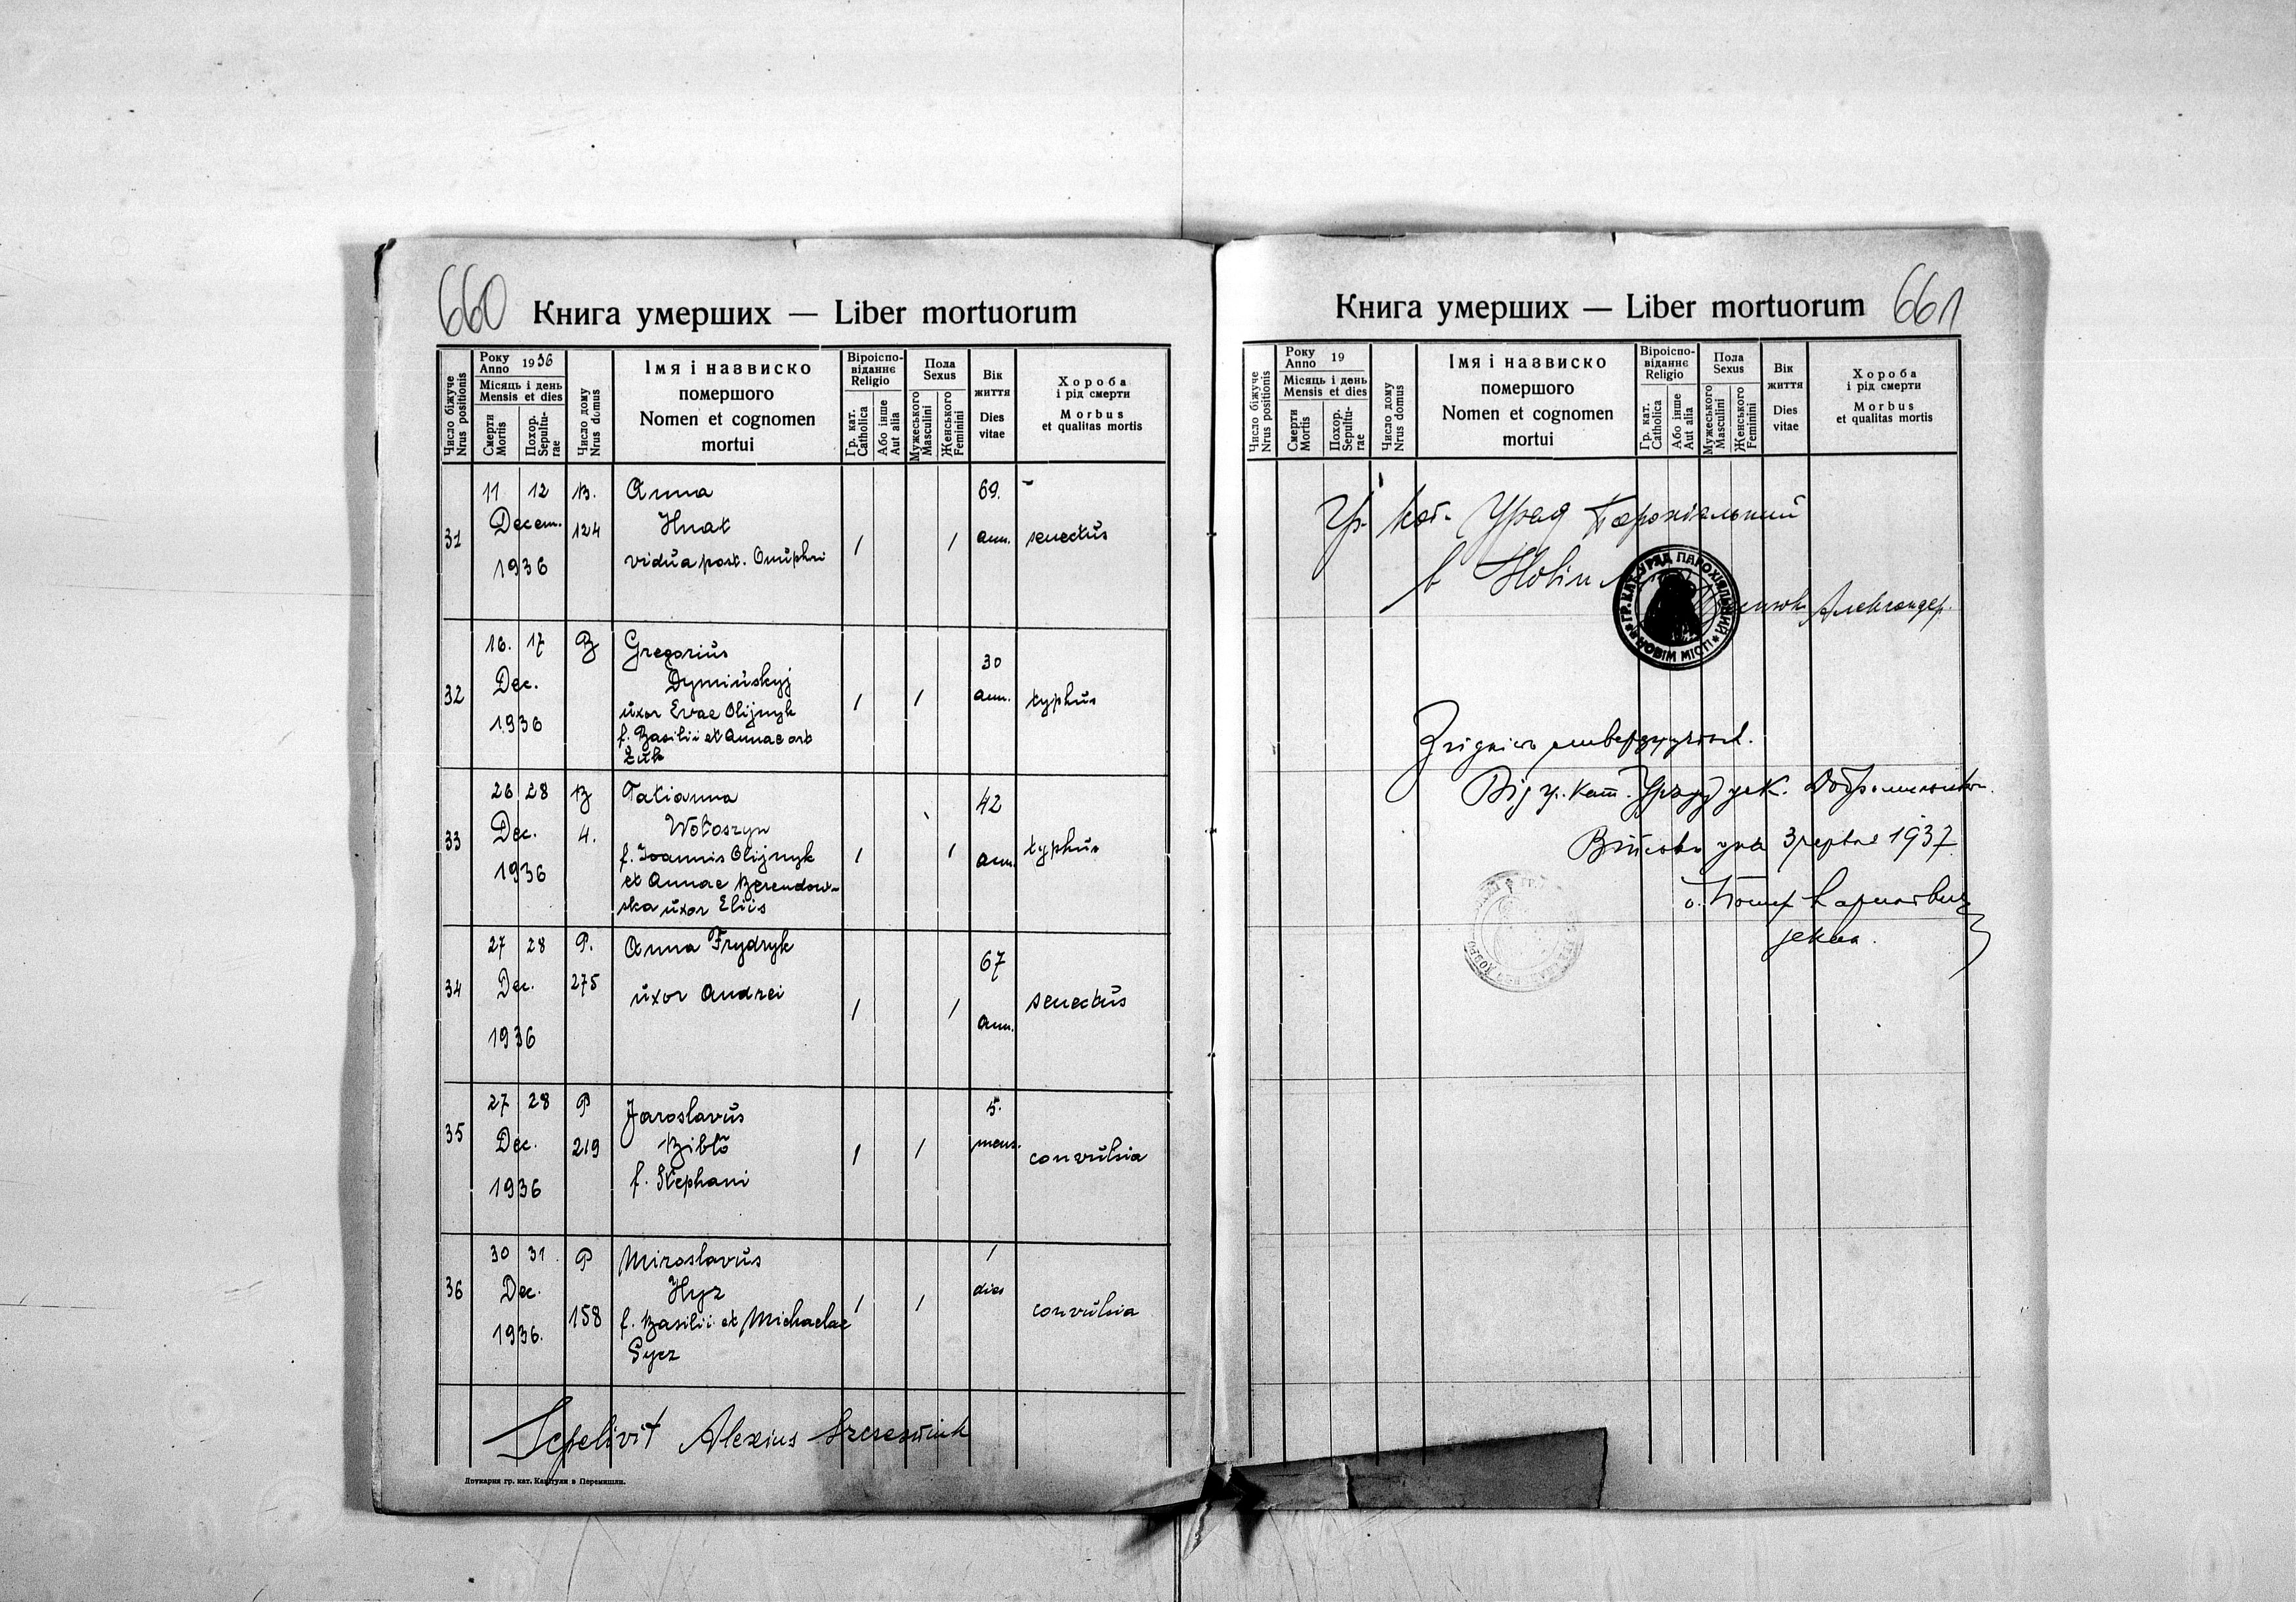 660
Книга умерших — Liber mortuorum
Число біжуче
Nrus positionis
Року
Anno
1936
Місяць і день
Mensis et dies
Смерти
Mortis
Похор.
Sepultu-
rae
Число дому
Nrus domus
Імя і назвиско
помершого
Nomen et cognomen
mortui
Віроіспо-
віданнє
Religio
Гр. кат.
Catholica
Або інше
Aut alia
Пола
Sexus
Мужеського
Masculini
Женського
Feminini
Вік
життя
Dies
vitae
Хороба
і рід смерти
Morbus
et qualitas mortis
31
11 12
Decem.
1936
B.
124
Anna
Hnat
vidua post. Onuphri
/
/
69.
ann.
senectus
32
16. 17
Dec.
1936
B
Gregorius
Dyminskyj
uxor Evae Olijnyk
f. Basilii et Annae ort
Żuk
/
/
30
ann.
typhus
33
26 28
Dec.
1936
B
4.
Tatianna
Wołoszyn
f. Joannis Olijnyk
et Annae Berendow-
ska uxor Eliis
/
/
42
ann.
typhus
34
27 28
Dec.
1936
P.
275
Anna Frydryk
uxor Andrei
/
/
67
ann.
senectus
35
27 28
Dec.
1936
P
219
Jaroslavus
f. Stephani
/
/
5.
mens.
convulsia
36
30 31.
Dec.
1936.
P
158
Miroslavus
Hyz
f. Basilii et Michaelae
/
/
1
dies
convulsia
Sepelivit Alexius
Друкарня гр. кат. Капітули в Перемишли.
661
Книга умерших — Liber mortuorum
Число біжуче
Nrus positionis
Року
Anno
19
Місяць і день
Mensis et dies
Смерти
Mortis
Похор.
Sepultu-
rae
Число дому
Nrus domus
Імя і назвиско
помершого
Nomen et cognomen
mortui
Віроіспо-
віданнє
Religio
Гр. кат.
Catholica
Або інше
Aut alia
Пола
Sexus
Мужеського
Masculini
Женського
Feminini
Вік
життя
Dies
vitae
Хороба
і рід смерти
Morbus
et qualitas mortis
Гр. кат. Уряд Парохіяльний
в
ГР. КАТ. УРЯД ПАРОХІЯЛЬНИЙ
В НОВІМ МІСТІ
Александер.
Від гр. кат. Уряду дек.
дня 3 червня 1937
о.
декан.